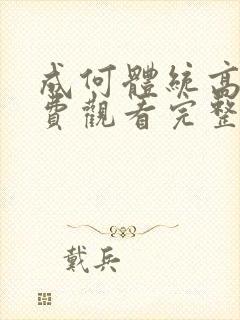 成何體統高
費觀看完整
戴兵